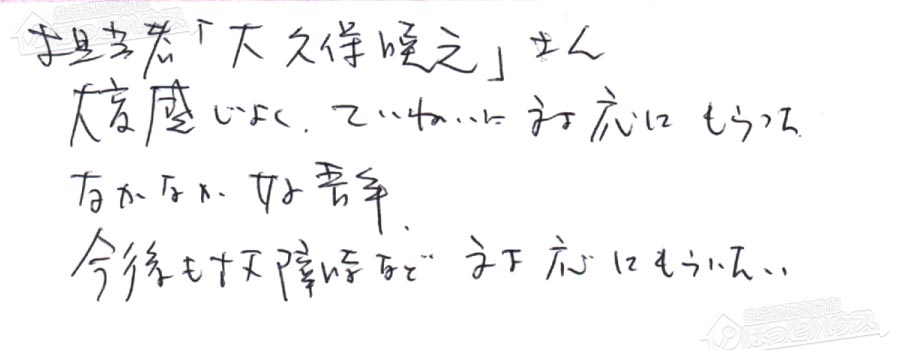 担当者「大久保暁之」さん
大変感じよく、ていねいに対応にもらった
なかなか好青年.
今後も故障時など対応にもらいたい
住宅設備専門店
ほっとハウス